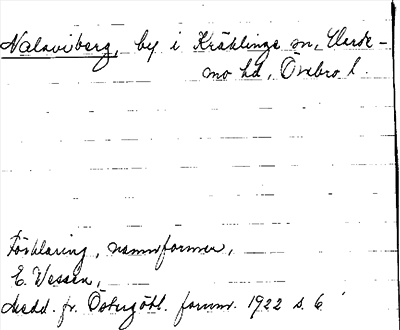 Nalaviberg, by i Kräklinge sn, Harde-
mo hd, Örebro l.
Förklaring, namnformer,
E. Wessén,
Medd. fr. Östergötl. fornm. 1922 s. 6